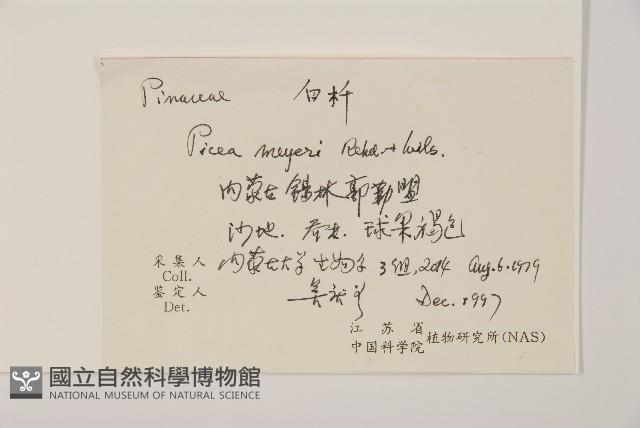 Pinaceae 白杄
Picea meyeri Rehd. et Wils.
内蒙古 锡林郭勒盟
沙地. 乔木. 球果褐色
采集人 Coll. 内蒙古大学生物系 3组, 2014 Aug. 6. 1979
鉴定人 Det. Dec. 1997
江苏省
中国科学院 植物研究所(NAS)
國立自然科學博物館
NATIONAL MUSEUM OF NATURAL SCIENCE